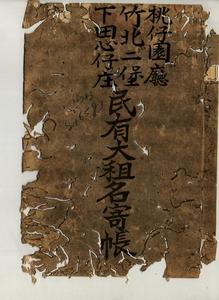 桃仔園廳
竹北二堡
下田心仔庄
民有大租名寄帳